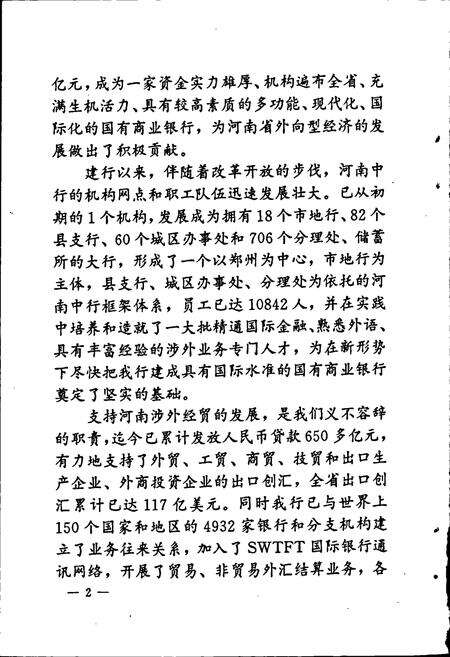 亿元，成为一家资金实力雄厚、机构遍布全省、充
满生机活力、具有较高素质的多功能、现代化、国
际化的国有商业银行，为河南省外向型经济的发
展做出了积极贡献。
建行以来，伴随着改革开放的步伐，河南中
行的机构网点和职工队伍迅速发展壮大。已从初
期的1个机构，发展成为拥有18个市地行、82个
县支行、60个城区办事处和706个分理处、储蓄
所的大行，形成了一个以郑州为中心，市地行为
主体，县支行、城区办事处、分理处为依托的河
南中行框架体系，员工已达10842人，并在实践
中培养和造就了一大批精通国际金融、熟悉外语、
具有丰富经验的涉外业务专门人才，为在新形势
下尽快把我行建成具有国际水准的国有商业银行
奠定了坚实的基础。
支持河南涉外经贸的发展，是我们义不容辞
的职责，迄今已累计发放人民币贷款650多亿元，
有力地支持了外贸、工贸、商贸、技贸和出口生
产企业、外商投资企业的出口创汇，全省出口创
汇累计已达117亿美元。同时我行已与世界上
150个国家和地区的4932家银行和分支机构建
立了业务往来关系，加入了SWTFT国际银行通
讯网络，开展了贸易、非贸易外汇结算业务，各
— 2 —